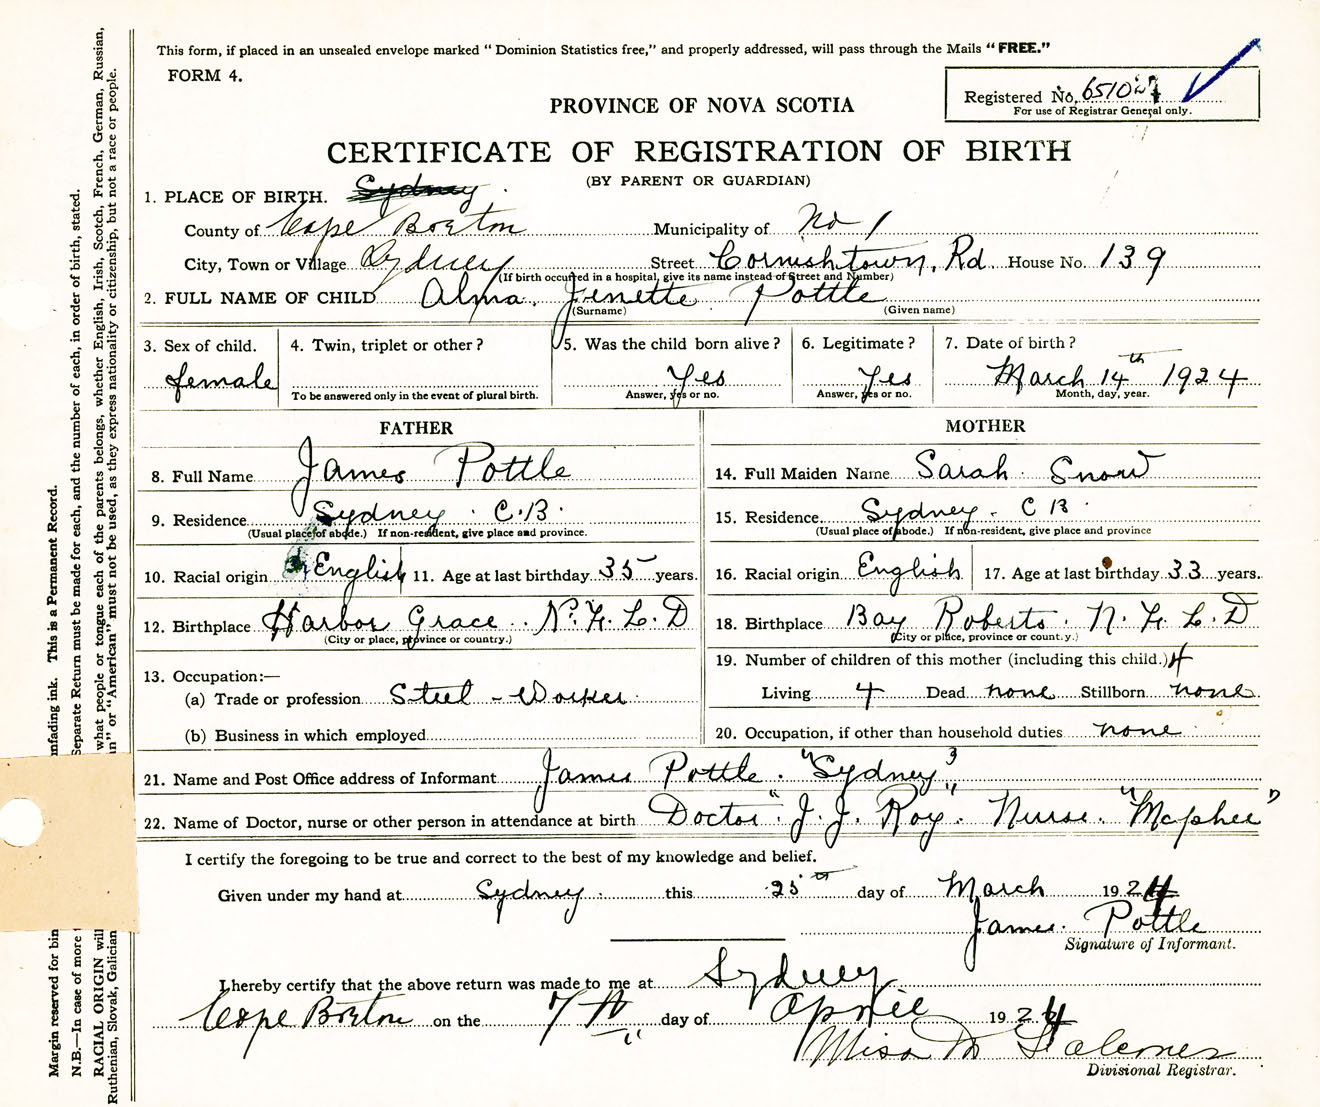 This form, if placed in an unsealed envelope marked " Dominion Statistics free," and properly addressed, will pass through the Mails "FREE."
FORM 4.
Registered No. 65102
For use of Registrar General only.
PROVINCE OF NOVA SCOTIA
CERTIFICATE OF REGISTRATION OF BIRTH
(BY PARENT OR GUARDIAN)
1. PLACE OF BIRTH. Sydney
County of Cape Breton Municipality of No 1
City, Town or Village Sydney Street Cornishtown, Rd. House No. 139
(If birth occurred in a hospital, give its name instead of Street and Number)
2. FULL NAME OF CHILD Alma. Jenette Pottle
(Surname) (Given name)
3. Sex of child. 4. Twin, triplet or other? 5. Was the child born alive? 6. Legitimate? 7. Date of birth?
female Yes Yes March 14th 1924
To be answered only in the event of plural birth. Answer, yes or no. Answer, yes or no. Month, day, year.
FATHER MOTHER
8. Full Name James Pottle 14. Full Maiden Name Sarah Snow
9. Residence Sydney. C.B. 15. Residence Sydney. C B
(Usual place of abode.) If non-resident, give place and province. (Usual place of abode.) If non-resident, give place and province
10. Racial origin English 11. Age at last birthday 35 years. 16. Racial origin English 17. Age at last birthday 33 years.
12. Birthplace Harbor Grace. N.F.L.D 18. Birthplace Bay Roberts. N.F.L.D
(City or place, province or country.) (City or place, province or country.)
13. Occupation:— 19. Number of children of this mother (including this child.) 4
(a) Trade or profession Steel - Worker Living 4 Dead none Stillborn none
(b) Business in which employed 20. Occupation, if other than household duties none
21. Name and Post Office address of Informant James Pottle. "Sydney"
22. Name of Doctor, nurse or other person in attendance at birth Doctor "J. J. Roy. Nurse. "Mcphee"
I certify the foregoing to be true and correct to the best of my knowledge and belief.
Given under my hand at Sydney. this 25th day of March 1924
James. Pottle
Signature of Informant.
I hereby certify that the above return was made to me at Sydney
Cape Breton on the 7th day of April 1924
Miss M
Divisional Registrar.
Margin reserved for bin nfading ink. This is a Permanent Record.
N.B.—In case of more Separate Return must be made for each, and the number of each, in order of birth, stated.
RACIAL ORIGIN will what people or tongue each of the parents belongs, whether English, Irish, Scotch, French, German, Russian,
Ruthenian, Slovak, Galician n" or "American" must not be used, as they express nationality or citizenship, but not a race or people.